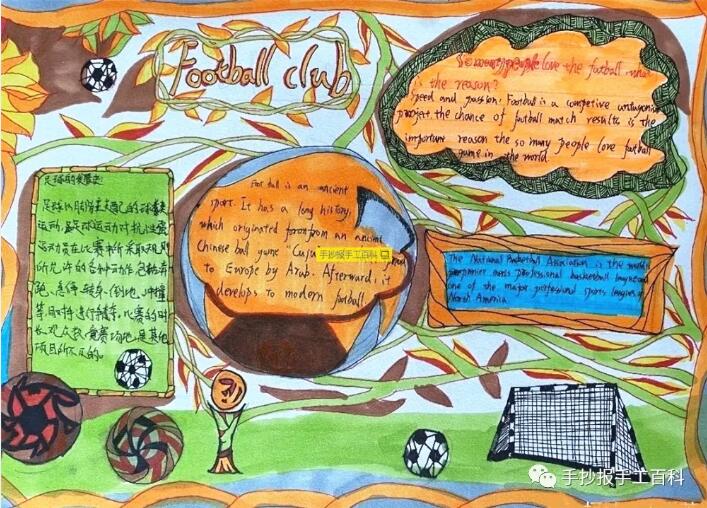 Football club
So many people love the football, what
is the reason?
Speed and passion. Football is a competive antagonistic
project, the chance of football match results is the
important reason the so many people love football
game in the world
Football is an ancient
sport. It has a long history,
which originated from an ancient
Chinese ball game "Cuju
手抄报手工百科
to Europe by Arab. Afterward, it
develops to modern football
足球的发展史:
运动
运动员在比赛中所采取规则
所允许的各种动作包括奔
跑、急停、转身、倒地、冲撞
等,同对手进行争夺。比赛的时
长、观众数、竞赛场地,是其他
项目所不及的。
The National Basketball Association is the world's
premier men's professional basketball league and
one of the major professional sports leagues of
North America.
手抄报手工百科